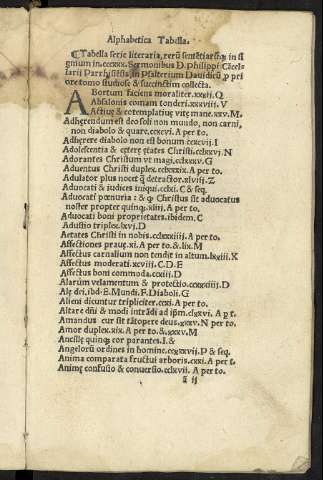 Alphabetica Tabella.
¶Tabella serie literaria, rerū sentētiarūq; in si
gnium in.cccxxx. Sermonibus D. Philippi Cācel-
larii Parrhisiēsis, in Psalterium Dauidicū, p pri
ore tomo studiose & succinctim collecta.
ABortum faciens moraliter.xxiii.Q
Absalonis comam tonderi.xxxviii.V
Actiuę & cōtemplatiuę vitę mane.xxv.M.
Adhęrendum est deo soli non mundo, non carni,
non diabolo & quare.ccxcvi.A per to.
Adhęrere diabolo non est bonum ccxcvii.I
Adolescentia & cęterę ętates Christi.ccbxxvi.N
Adorantes Christum vt magi.ccxxxv.G
Aduentus Christi duplex.ccbxxix.A per to.
Adulator plus nocet ꝗ̄ detractor.xlviii.Z
Aduocati & iudices iniqui.cclxi.C & seq.
Aduocatī pœnuria: & ꝙ Christus sit aduocatus
noster propter quinq;.xliii.A per to.
Aduocati boni proprietates.ibidem.C
Adustio triplex.lxvi.D
Aetates Christi in nobis.cclxxxiiii.A per to.
Affectiones prauę.xi.A per to.&.lix.M
Affectus carnalium non tendit in altum.lxxiii.X
Affectus moderati.xcviii.C.D.E
Affectus boni commoda.cxiii.D
Alarum velamentum & protectio.cxxxiiii.D
Alę dei.ibd.E.Mundi.F.Diaboli.G
Alieni dicuntur tripliciter.ccxi.A per to.
Altare dn̄i & modi intrādi ad ip̄m.clxxvi.A p t.
Amandus cur sit tātopere deus.xxxv.N per to.
Amor duplex.xix.A per to.&.xxxv.M
Ancillę quinq; cor parantes.I.&
Angelorū ordines in homine.ccxxxvii.P & seq.
Anima comparata fructui arboris.ccxi.A per t.
Animę confusio & conuersio.cclxvii.A per to.
ā ii